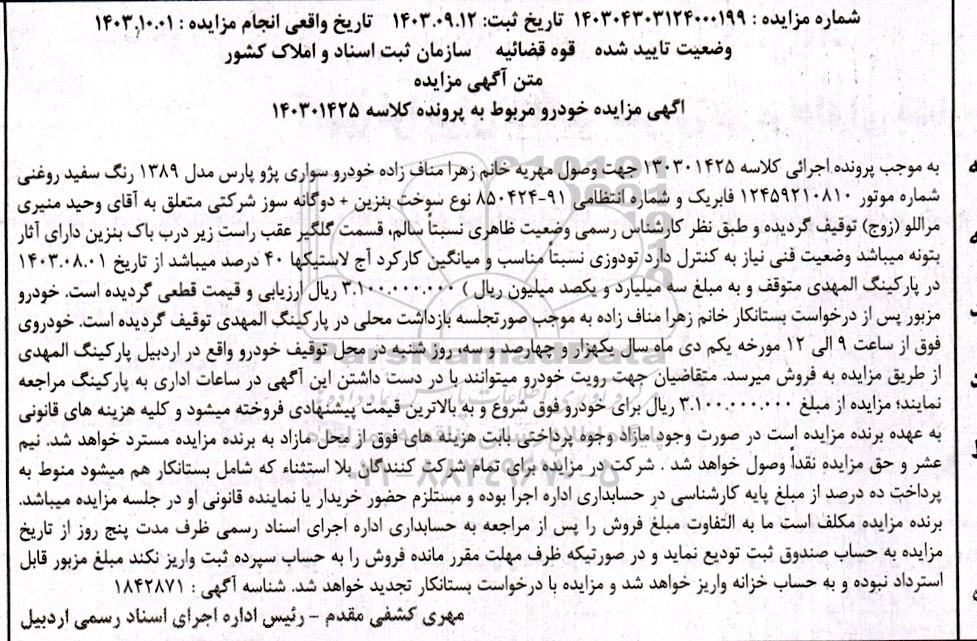 شماره مزایده : ۱۴۰۳۰۴۳۰۳۱۲۴۰۰۰۱۹۹ تاریخ ثبت: ۱۴۰۳.۰۹.۱۲ تاریخ واقعی انجام مزایده : ۱۴۰۳.۱۰.۰۱
وضعیت تایید شده قوه قضائیه سازمان ثبت اسناد و املاک کشور
متن آگهی مزایده
اگهی مزایده خودرو مربوط به پرونده کلاسه ۱۴۰۳۰۱۴۲۵
به موجب پرونده اجرائی کلاسه ۱۴۰۳۰۱۴۲۵ جهت وصول مهریه خانم زهرا مناف زاده خودرو سواری پژو پارس مدل ۱۳۸۹ رنگ سفید روغنی
شماره موتور ۱۲۴۵۹۲۱۰۸۱۰ فابریک و شماره انتظامی ۹۱-۸۵۰۴۲۴ نوع سوخت بنزین + دوگانه سوز شرکتی متعلق به آقای وحید منیری
مراللو (زوج) توقیف گردیده و طبق نظر کارشناس رسمی وضعیت ظاهری نسبتاً سالم، قسمت گلگیر عقب راست زیر درب باک بنزین دارای آثار
بتونه میباشد وضعیت فنی نیاز به کنترل دارد تودوزی نسبتاً مناسب و میانگین کارکرد آج لاستیکها ۴۰ درصد میباشد از تاریخ ۱۴۰۳.۰۸.۰۱
در پارکینگ المهدی متوقف و به مبلغ سه میلیارد و یکصد میلیون ریال ) ۳.۱۰۰.۰۰۰.۰۰۰ ریال ارزیابی و قیمت قطعی گردیده است. خودرو
مزبور پس از درخواست بستانکار خانم زهرا مناف زاده به موجب صورتجلسه بازداشت محلی در پارکینگ المهدی توقیف گردیده است. خودروی
فوق از ساعت ۹ الی ۱۲ مورخه یکم دی ماه سال یکهزار و چهارصد و سه، روز شنبه در محل توقیف خودرو واقع در اردبیل پارکینگ المهدی
از طریق مزایده به فروش میرسد. متقاضیان جهت رویت خودرو میتوانند با در دست داشتن این آگهی در ساعات اداری به پارکینگ مراجعه
نمایند؛ مزایده از مبلغ ۳.۱۰۰.۰۰۰.۰۰۰ ریال برای خودرو فوق شروع و به بالاترین قیمت پیشنهادی فروخته میشود و کلیه هزینه های قانونی
به عهده برنده مزایده است در صورت وجود مازاد وجوه پرداختی بابت هزینه های فوق از محل مازاد به برنده مزایده مسترد خواهد شد. نیم
عشر و حق مزایده نقداً وصول خواهد شد . شرکت در مزایده برای تمام شرکت کنندگان بلا استثناء که شامل بستانکار هم میشود منوط به
پرداخت ده درصد از مبلغ پایه کارشناسی در حسابداری اداره اجرا بوده و مستلزم حضور خریدار یا نماینده قانونی او در جلسه مزایده میباشد.
برنده مزایده مکلف است ما به التفاوت مبلغ فروش را پس از مراجعه به حسابداری اداره اجرای اسناد رسمی ظرف مدت پنج روز از تاریخ
مزایده به حساب صندوق ثبت تودیع نماید و در صورتیکه ظرف مهلت مقرر مانده فروش را به حساب سپرده ثبت واریز نکند مبلغ مزبور قابل
استرداد نبوده و به حساب خزانه واریز خواهد شد و مزایده با درخواست بستانکار تجدید خواهد شد. شناسه آگهی : ۱۸۴۲۸۷۱
مهری کشفی مقدم - رئیس اداره اجرای اسناد رسمی اردبیل